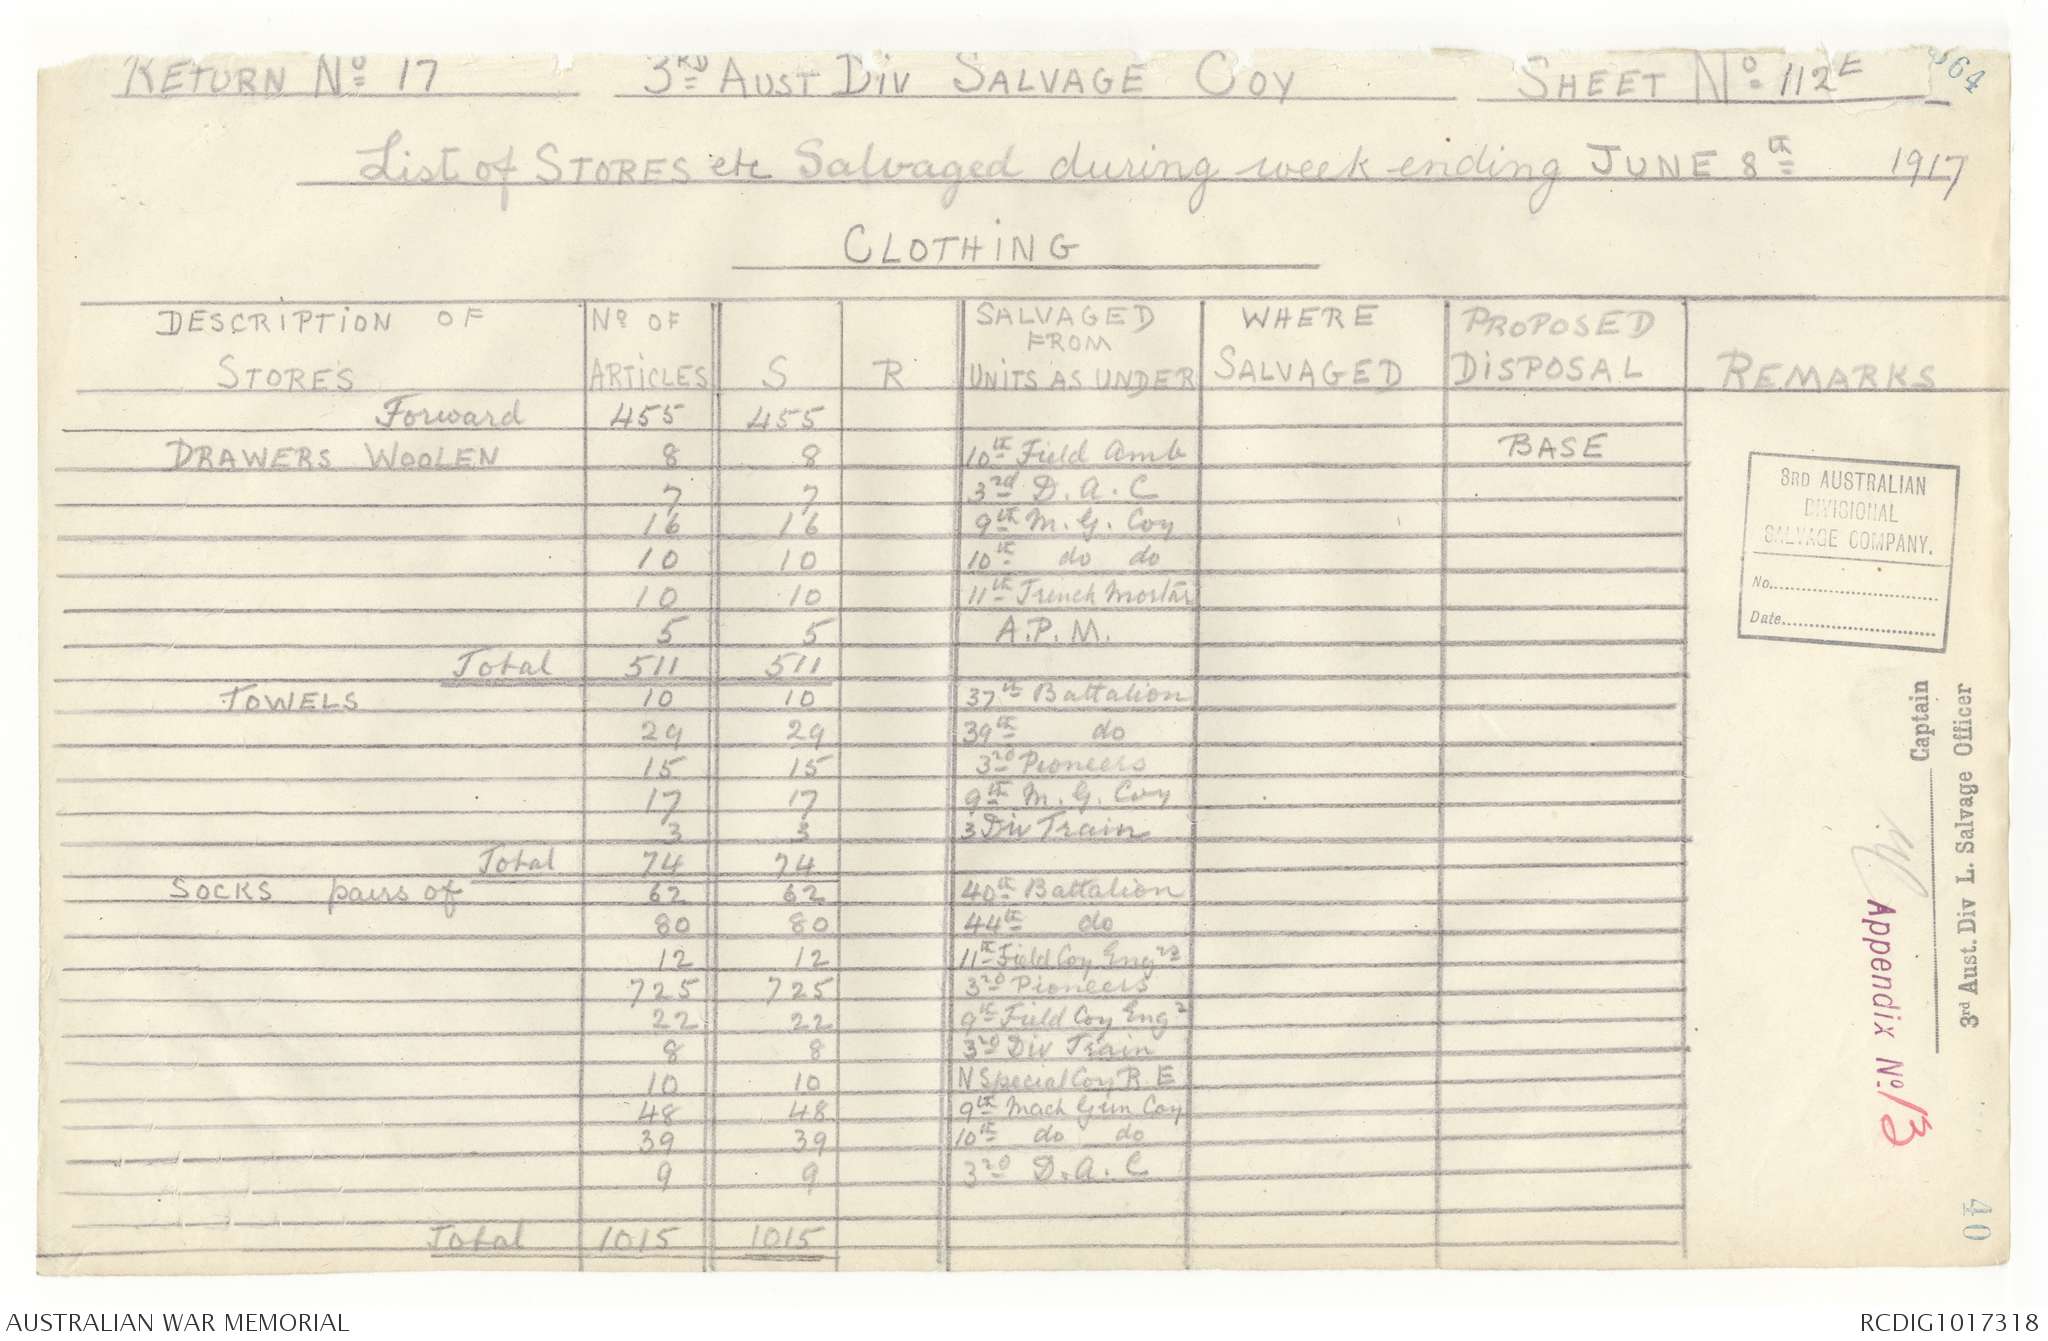 RETURN No 17 3RD AUST DIV SALVAGE COY SHEET No 112E
List of STORES etc Salvaged during week ending JUNE 8th 1917
CLOTHING
DESCRIPTION OF STORES | No OF ARTICLES | S | R | SALVAGED FROM UNITS AS UNDER | WHERE SALVAGED | PROPOSED DISPOSAL | REMARKS
Forward 455 455
DRAWERS WOOLEN 8 8 10th Field Amb BASE
7 7 3rd D.A.C
16 16 9th M.G. Coy
10 10 10th do do
10 10 11th Trench Mortar
5 5 A.P.M.
Total 511 511
TOWELS 10 10 37th Battalion
29 29 39th do
15 15 3RD Pioneers
17 17 9th M.G. Coy
3 3 3 Div Train
Total 74 74
SOCKS pairs of 62 62 40th Battalion
80 80 44th do
12 12 11th Field Coy Engrs
725 725 3RD Pioneers
22 22 9th Field Coy Engr
8 8 3RD Div Train
10 10 N Special Coy R.E
48 48 9th Mach Gun Coy
39 39 10th do do
9 9 3RD D.A.C
Total 1015 1015
3RD AUSTRALIAN
DIVISIONAL
SALVAGE COMPANY.
No.
Date
Captain
3rd Aust. Div L. Salvage Officer
Appendix No. 13
40
AUSTRALIAN WAR MEMORIAL
RCDIG1017318